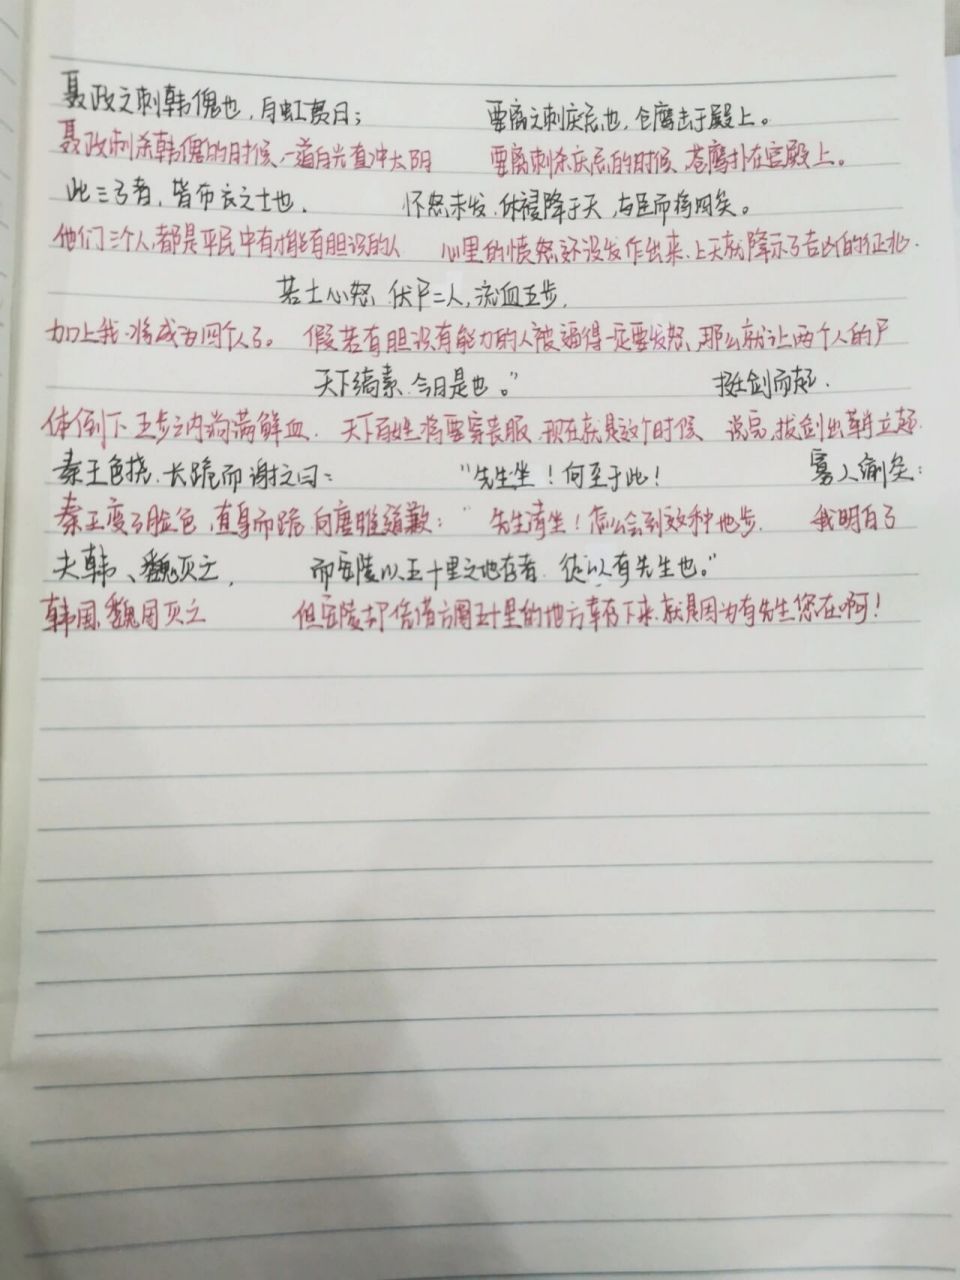 聂政之刺韩傀也，白虹贯日； 要离之刺庆忌也，仓鹰击于殿上。
聂政刺杀韩傀的时候，一道白光直冲太阳 要离刺杀庆忌的时候，苍鹰扑在宫殿上。
此三子者，皆布衣之士也， 怀怒未发，休祲降于天，与臣而将四矣。
他们三个人，都是平民中有才能有胆识的人 心里的愤怒还没发作出来，上天就降示了吉凶的征兆.
若士必怒，伏尸二人，流血五步，
加上我，将成为四个人了。 假若有胆识有能力的人被逼得一定要发怒，那么就让两个人的尸
天下缟素，今日是也。” 挺剑而起.
体倒下，五步之内淌满鲜血. 天下百姓将要穿丧服，现在就是这个时候 说完，拔剑出鞘立起.
秦王色挠，长跪而谢之曰： “先生坐！何至于此！ 寡人谕矣：
秦王变了脸色，直身而跪，向唐雎道歉： “先生请坐！怎么会到这种地步. 我明白了
夫韩、魏灭亡， 而安陵以五十里之地存者，徒以有先生也。”
韩国、魏国灭亡 但安陵却凭借方圆五十里的地方幸存下来，就是因为有先生您在啊！